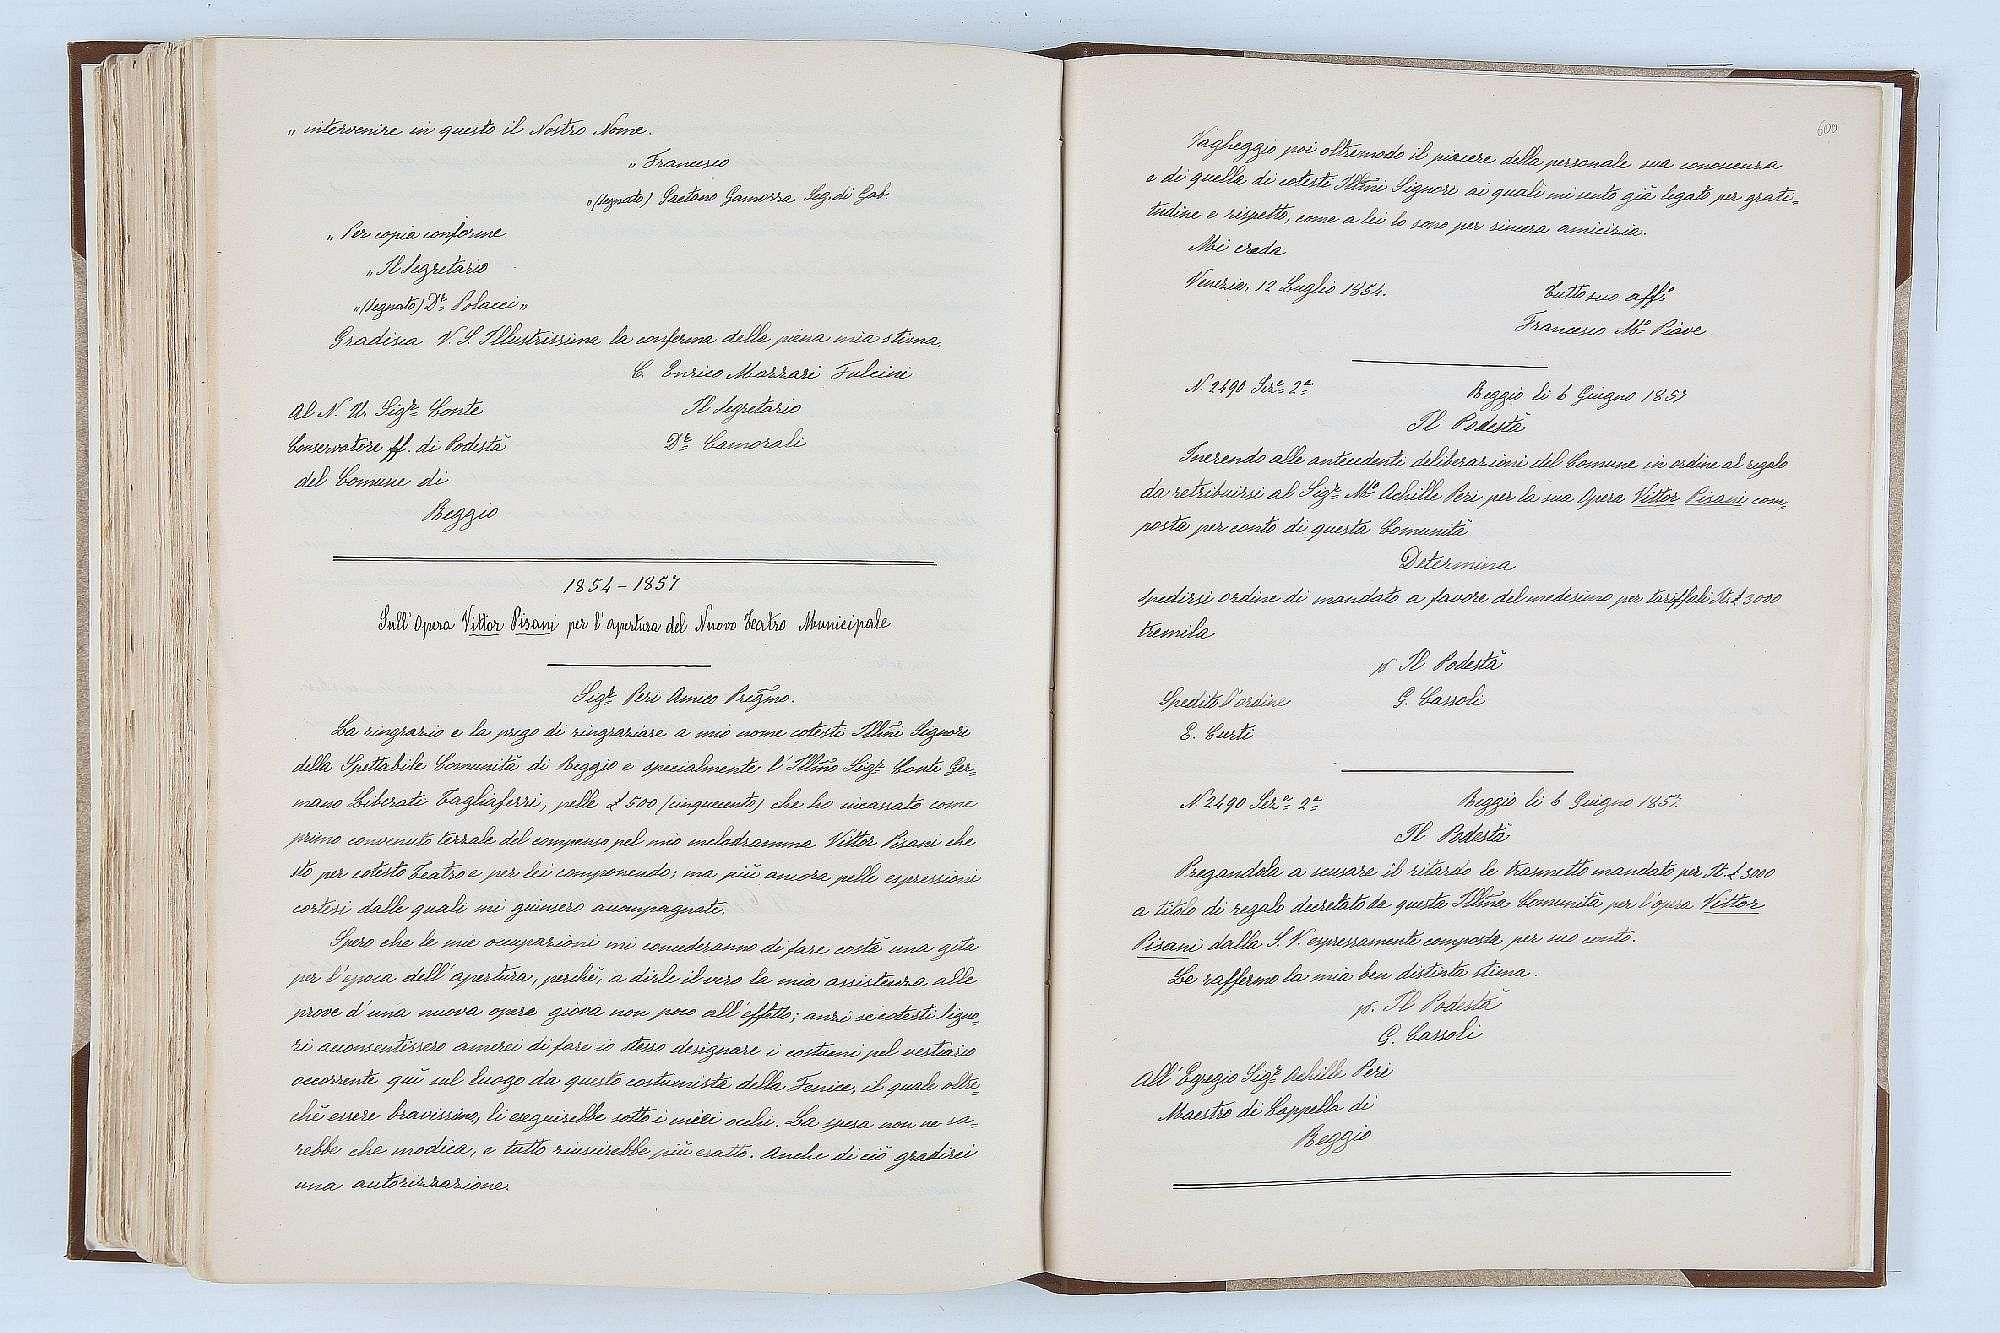 „ intervenire in questo il Nostro Nome.
„ Francesco
„ (segnato) Gaetano Gamorra Seg. di Gab.
„ Per copia conforme
„ Il Segretario
„ (segnato) Dr. Polacci „
Gradisca V. S. Illustrissima la conferma della piena mia stima.
C. Enrico Mazzari Fulcini
Al N. U. Sigr. Conte
Il Segretario
Conservatore ff. di Podestà
Dr. Camorali
del Comune di
Reggio
1854 - 1857
Sull' Opera Vittor Pisani per l' apertura del Nuovo Teatro Municipale
Sigr. Peri Amico Pregmo.
La ringrazio e la prego di ringraziare a mio nome cotesti Illmi Signori
della Spettabile Comunità di Reggio e specialmente l' Illmo Sigr. Conte Ger=
mano Liberati Tagliaferri, pelle £ 500 (cinquecento) che ho incassato come
primo convenuto terzale del compenso pel mio melodramma Vittor Pisani che
sto per cotesto Teatro e per lei componendo; ma più ancora pelle espressioni
cortesi dalle quali mi giunsero accompagnate.
Spero che le mie occupazioni mi concederanno di fare costà una gita
per l' epoca dell' apertura, perché, a dirle il vero la mia assistenza alle
prove d' una nuova opera giova non poco all' effetto; anzi se cotesti Signo-
ri acconsentissero amerei di fare io stesso designare i costumi pel vestiario
occorrente quì sul luogo da questo costumista della Fenice, il quale oltre=
chè essere bravissimo, li eseguirebbe sotto i miei occhi. La spesa non ne sa=
rebbe che modica, e tutto riuscirebbe più esatto. Anche di ciò gradirei
una autorizzazione.
600
Vagheggio poi oltremodo il piacere della personale sua conoscenza
e di quella di cotesti Illmi Signori ai quali mi sento già legato per grati=
tudine e rispetto, come a lei lo sono per sincera amicizia.
Mi creda
Venezia, 12 Luglio 1854.
Tutto suo affo
Francesco Mo. Piave
N. 2490 Sera. 2a.
Reggio li 6 Giugno 1857
Il Podestà
Inerendo alle antecedenti deliberazioni del Comune in ordine al regalo
da retribuirsi al Sigr. Mo. Achille Peri per la sua Opera Vittor Pisani com=
posta per conto di questa Comunità
Determina
spedirsi ordine di mandato a favore del medesimo per tariffali It. £ 3000
tremila
p. Il Podestà
Spedito l' ordine
G. Cassoli
E. Curti
N. 2490 Sera. 2a.
Reggio li 6 Giugno 1857.
Il Podestà
Pregandola a scusare il ritardo le trasmetto mandato per It. £ 3000
a titolo di regalo decretato da questa Illma Comunità per l' opera Vittor
Pisani dalla S. V. espressamente composta per suo conto.
Le raffermo la mia ben distinta stima.
p. Il Podestà
G. Cassoli
All' Egregio Sigr. Achille Peri
Maestro di Cappella di
Reggio